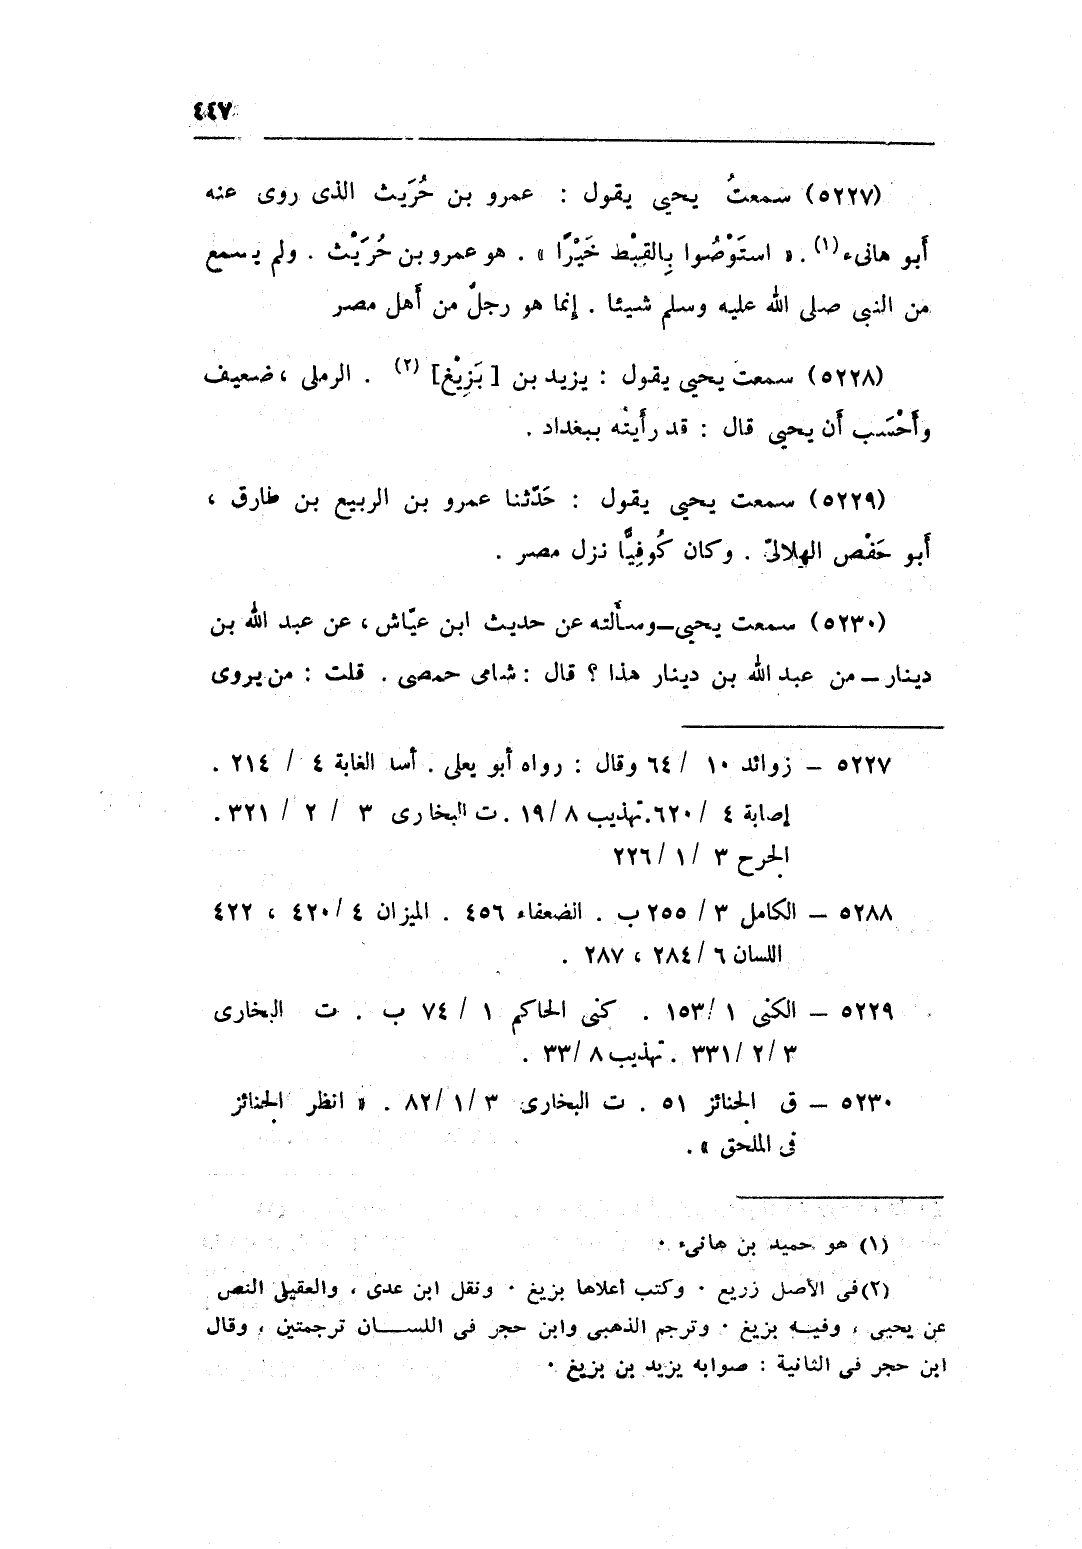 ٤٤٧
(٥٢٢٧) سمعتُ يحيى يقول : عمرو بن حُرَيث الذى روى عنه
أَبو هانىء(١) . « استَوْصُوا بِالقِبْط خَيْرًا » . هو عمرو بن حُرَيْث . ولم يسمع
من النبى صلى الله عليه وسلم شيئا . إِنما هو رجلٌ من أَهل مصر
(٥٢٢٨) سمعت يحيى يقول : يزيد بن [ بَزِيْغ] (٢) . الرملى ، ضعيف
وأَحْسَب أَن يحيى قال : قد رأَيته ببغداد .
(٥٢٢٩) سمعت يحيى يقول : حَدّثنا عمرو بن الربيع بن طارق ،
أَبو حَفْص الهلالىّ . وكان كُوفِيًّا نزل مصر .
(٥٢٣٠) سمعت يحيى ــ وسأَلته عن حديث ابن عيّاش ، عن عبد الله بن
دينار ــ من عبد الله بن دينار هذا ؟ قال : شامى حمصى . قلت : من يروى
٥٢٢٧ ــ زوائد ١٠ / ٦٤ وقال : رواه أبو يعلى . أسا الغابة ٤ / ٢١٤ .
إصابة ٤ / ٦٢٠. تهذيب ٨ /١٩ . ت البخارى ٣ / ٢ / ٣٢١ .
الجرح ٣ /١ /٢٢٦
٥٢٨٨ ــ الكامل ٣ / ٢٥٥ ب . الضعفاء ٤٥٦ . الميزان ٤ /٤٢٠ ، ٤٢٢
اللسان ٦ / ٢٨٤ ، ٢٨٧ .
٥٢٢٩ ــ الكنى ١ /١٥٣ . كنى الحاكم ١ / ٧٤ ب . ت البخارى
٣ /٢ /٣٣١ . تهذيب ٨ /٣٣ .
٥٢٣٠ ــ ق الجنائز ٥١ . ت البخارى ٣ /١ /٨٢ . « انظر الجنائز
فى الملحق » .
(١) هو حميد بن هانىء ٠
(٢)فى الأصل زريع ٠ وكتب أعلاها بزيغ ٠ ونقل ابن عدى ، والعقيلى النص
عن يحيى ، وفيـــه بزيغ ٠ وترجم الذهبى وابن حجر فى اللســـان ترجمتين ، وقال
ابن حجر فى الثانية : صوابه يزيد بن بزيغ ٠